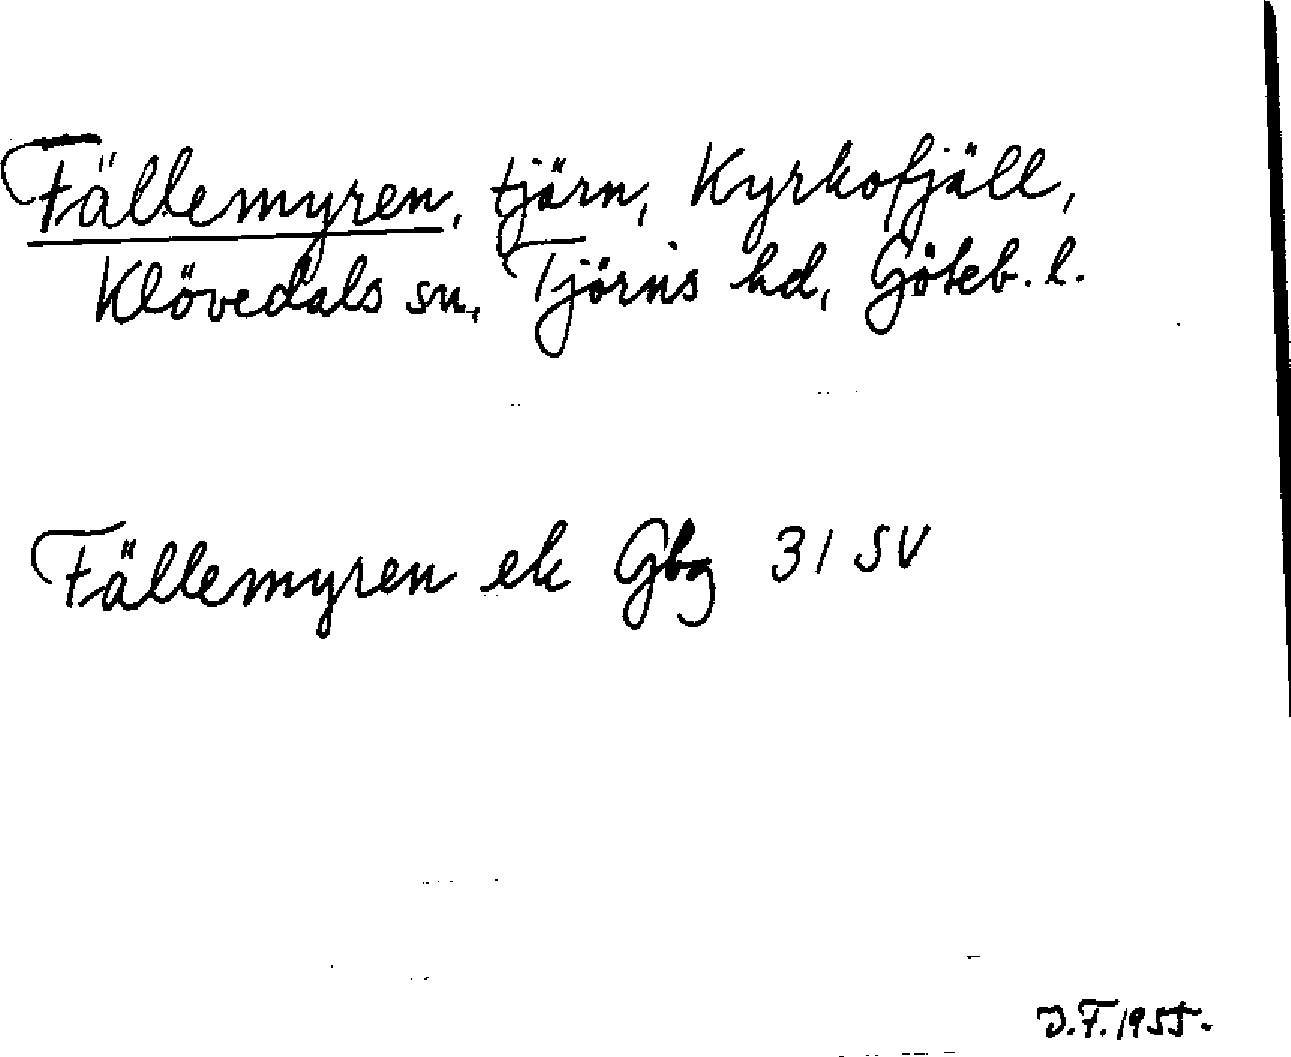 Fällemyren, tjärn, Kyrkofjäll,
Klövedals sn, Tjörns hd, Göteb. l.
Fällemyren ek Gbg 31 SV
J.F. 1955.